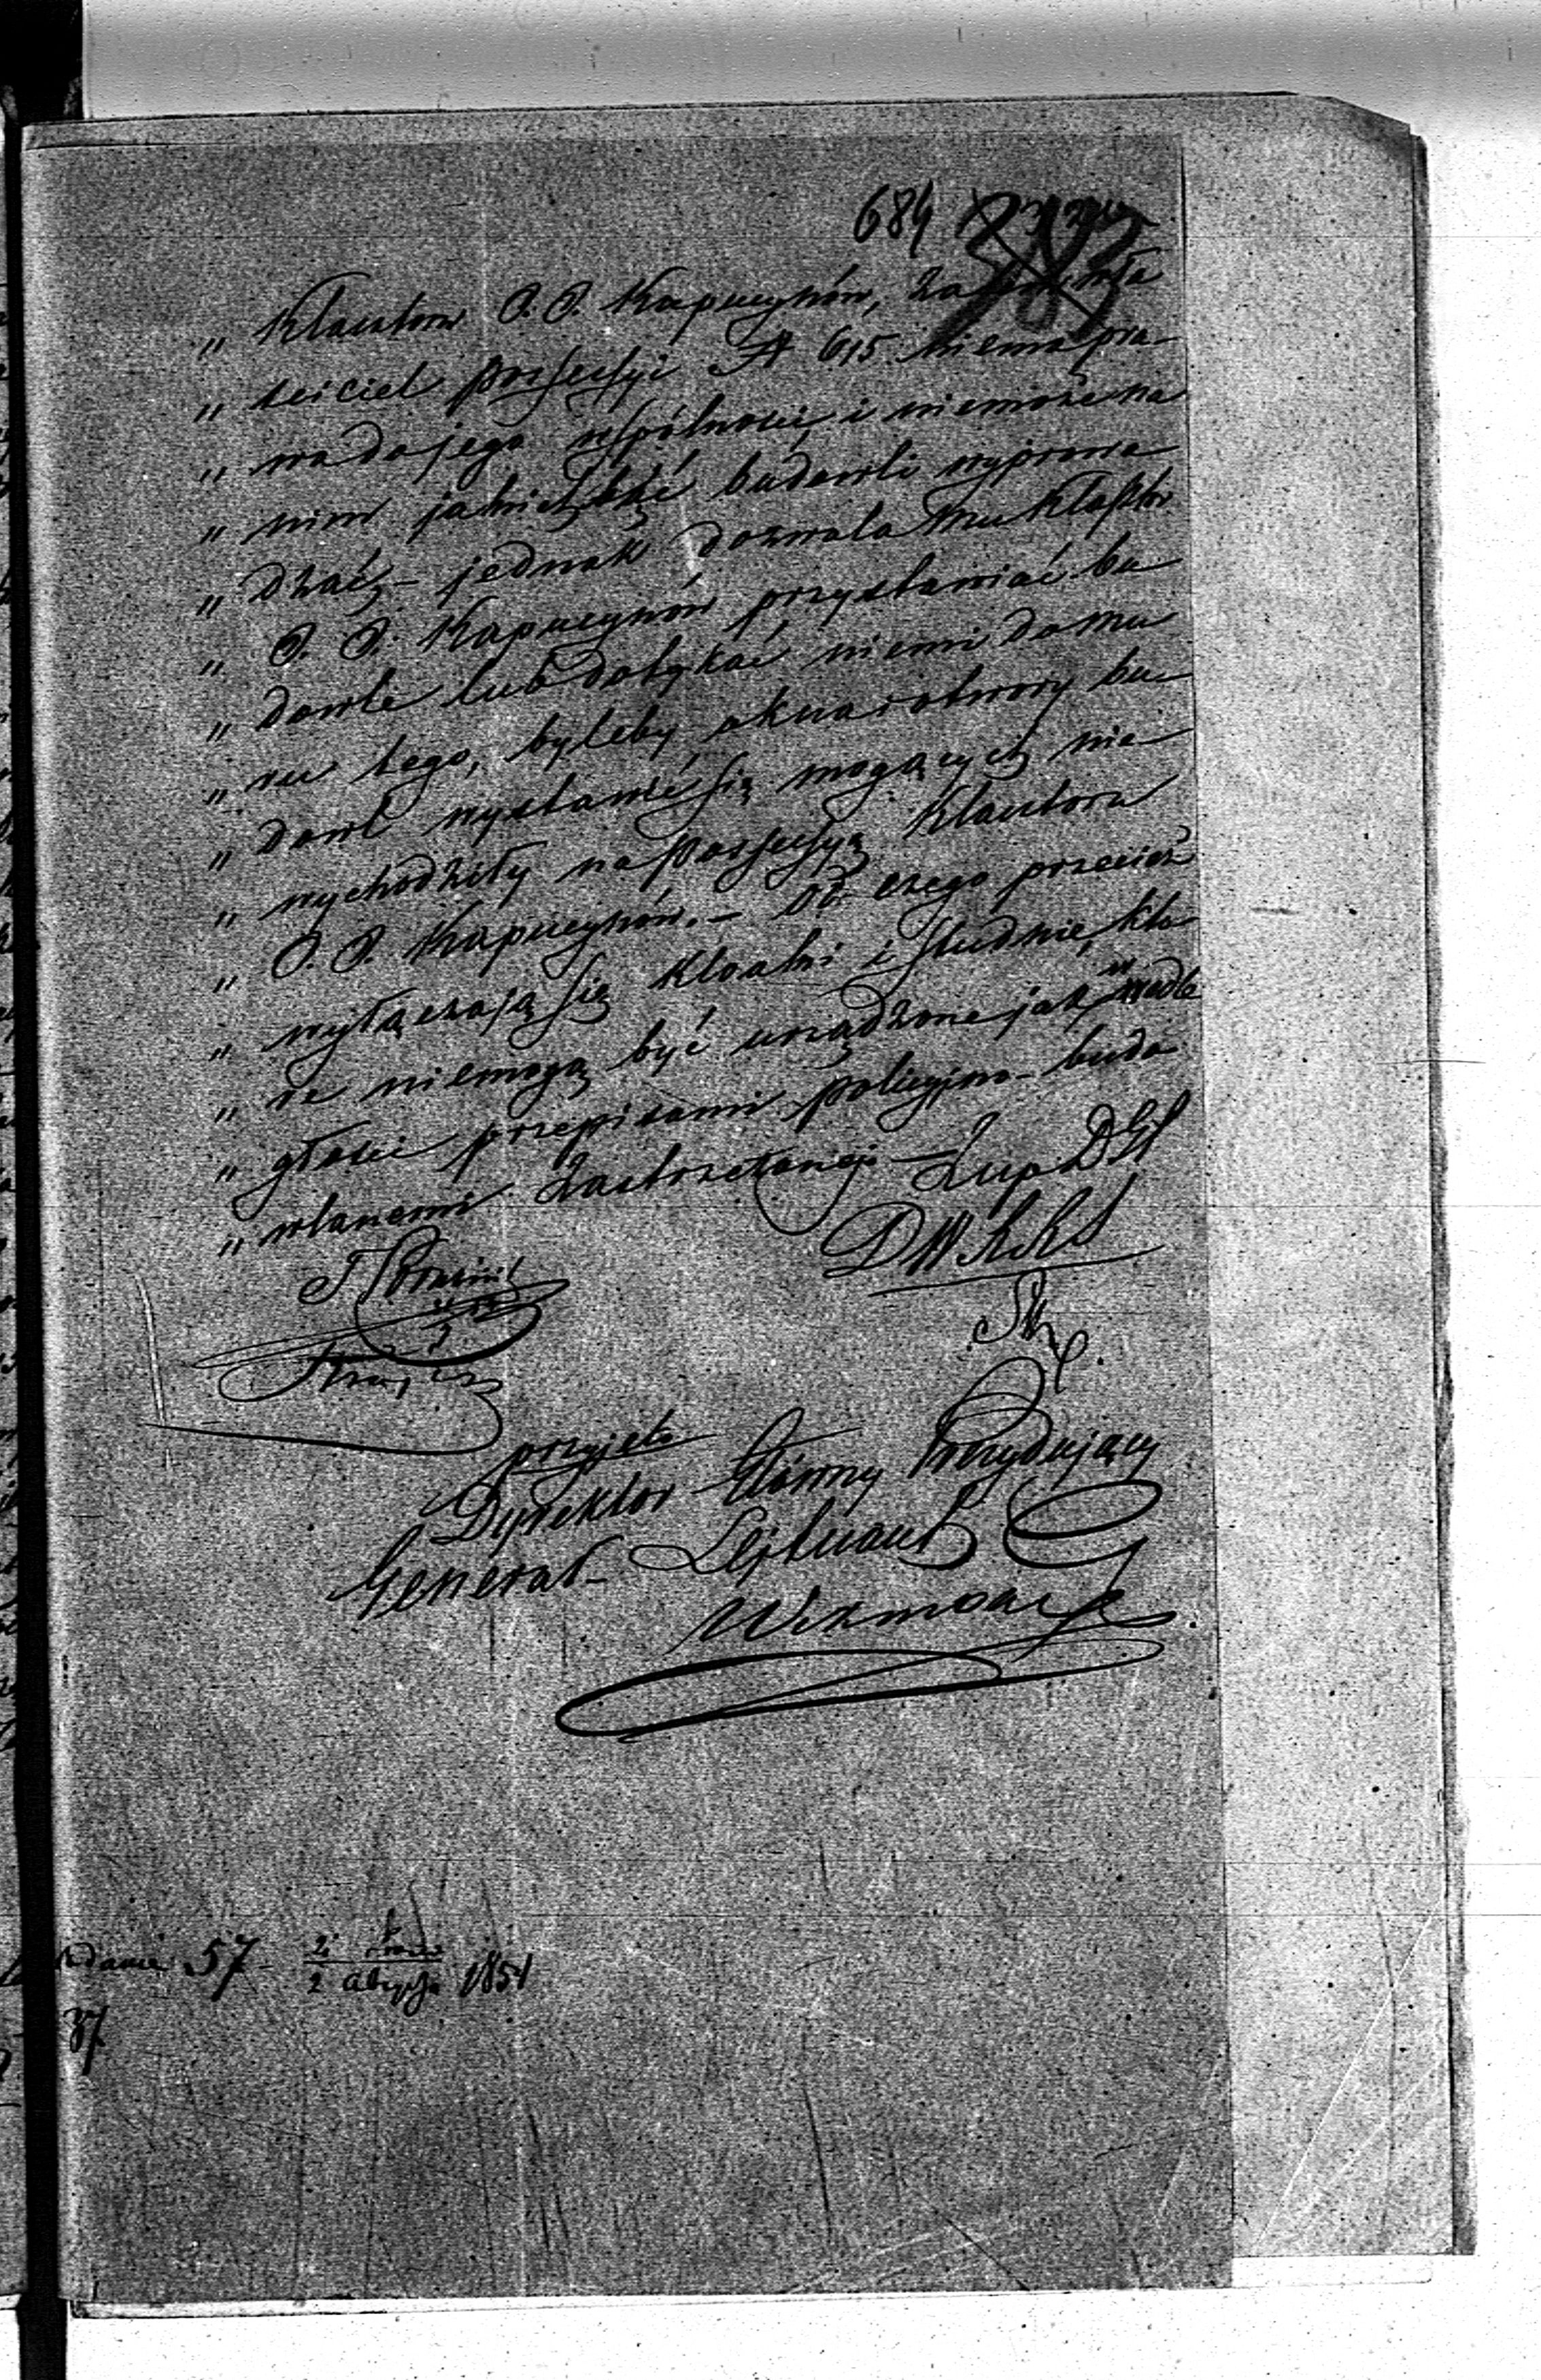 684
„ Klasztoru O. O. Kapucynów, za
„ ściciel possessyi N 615 niema pra-
„ wa do jego wspólności i niemoże na
„ nim jakichbądź budowli wyprowa-
„ dzać, – jednak dozwala mu Klasztor
„ O. O. Kapucynów przystawiać bu-
„ dowle lub dotykać niemi do mu-
„ ru tego, byleby okna i otwory bu-
„ dowl wystawić się mogących nie
„ wychodziły na possessyą Klasztoru
„ O. O. Kapucynów. – Od czego przecież
„ wyłączają się kloaki i studnie, któ-
„ re niemogą być urządzone jak w odle
„ głości przepisami policyjno-budo
„ wlanemi zastrzeżonéj –
przyjęto
Dyrektor Główny Prezydujący
Generał-Lejtnant
2 1851
57
37